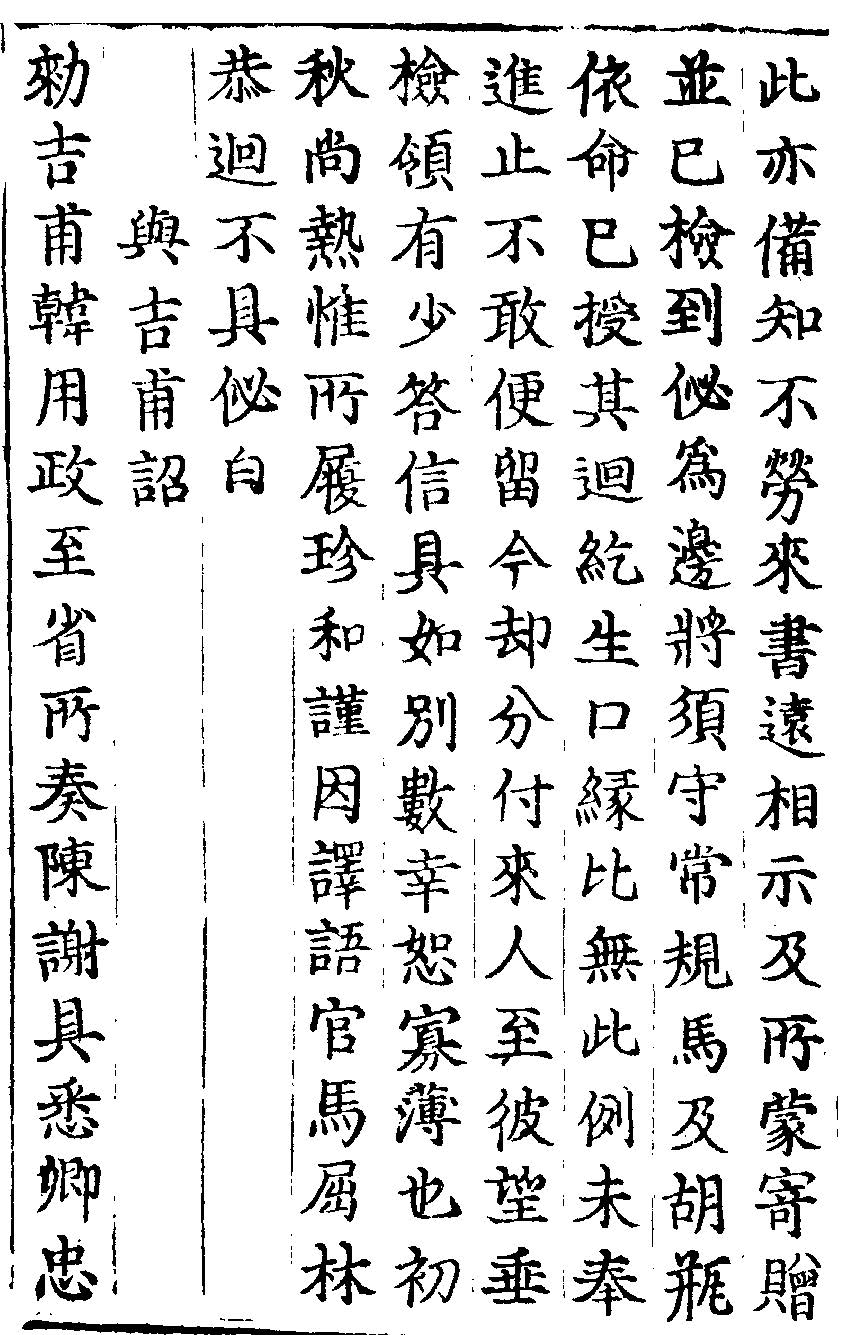 此亦備知不勞來書遠相示及所蒙寄贈
並已檢到佖爲邊將須守常規馬及胡瓶
依命已授其迴紇生口緣比無此例未奉
進止不敢便留今却分付來人至彼望垂
檢領有少答信具如別數幸恕寡薄也初
秋尚熱惟所履珍和謹因譯語官馬屈林
恭迴不具佖白
與吉甫詔
勑吉甫韓用政至省所奏陳謝具悉卿忠